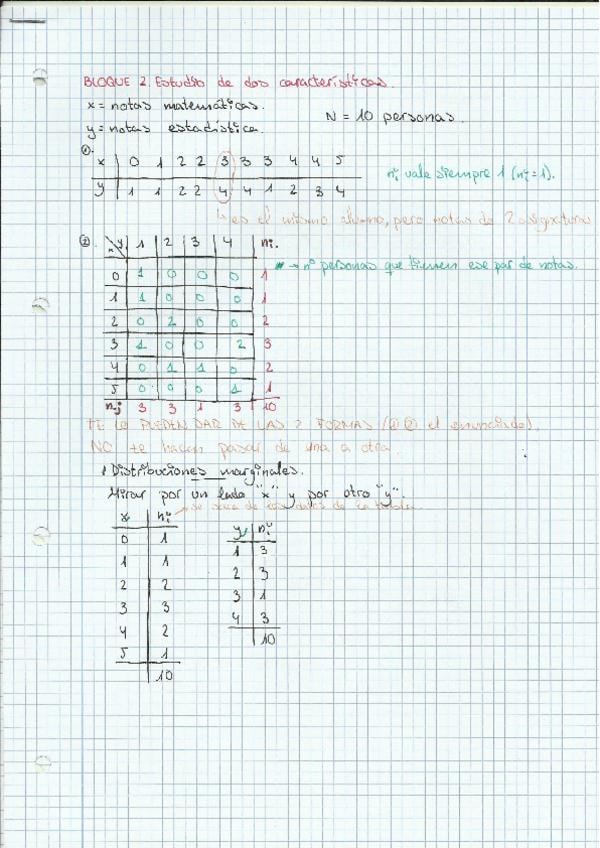 BLOQUE 2. Estudio de dos características.
x = notas matemáticas.
N = 10 personas.
y = notas estadística.
①.
x 0 1 2 2 3 3 3 4 4 5
y 1 1 2 2 4 4 1 2 3 4
ni vale siempre 1 (ni=1).
↳ es el mismo alumno, pero notas de 2 asignaturas
②.
x y 1 2 3 4 ni.
0 1 0 0 0 1
→ nº personas que tienen ese par de notas.
1 1 0 0 0 1
2 0 2 0 0 2
3 1 0 0 2 3
4 0 1 1 0 2
5 0 0 0 1 1
n.j 3 3 1 3 10
TE LO PUEDEN DAR DE LAS 2 FORMAS (① ② el enunciado).
NO te hacen pasar de una a otra.
1 Distribuciones marginales.
Mirar por un lado "x" y por otro "y".
→ se saca de los datos de la tabla
x ni
0 1
1 1
2 2
3 3
4 2
5 1
10
y ni
1 3
2 3
3 1
4 3
10